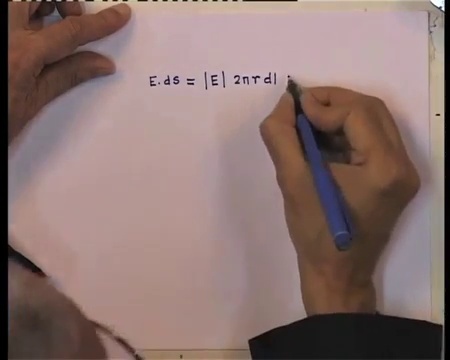 E.ds = |E| 2πr dl